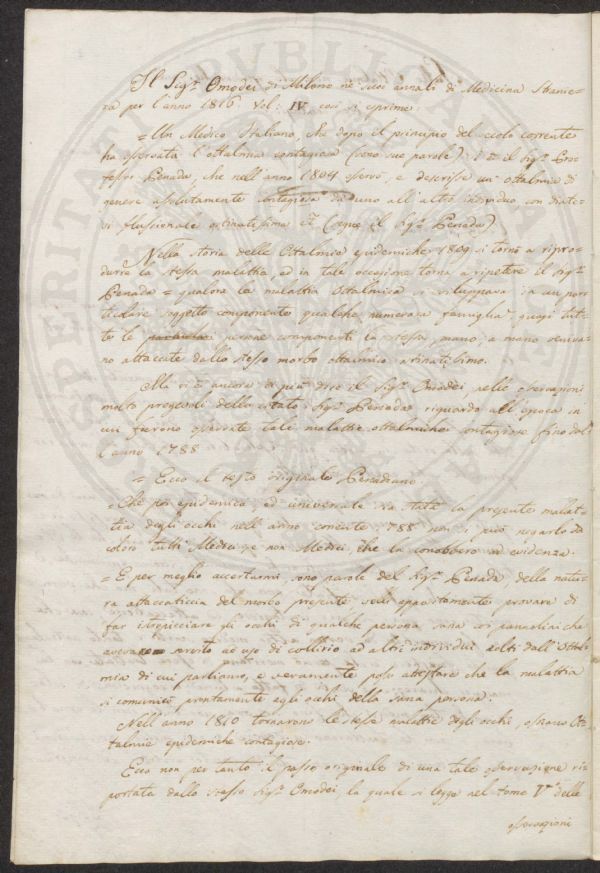 Il Sig.r Omodei di Milano ne suoi annali di Medicina Stranie-
ra per l'anno 1816 Vol: IV così si esprime:
= Un Medico Italiano, che dopo il principio del secolo corrente
ha osservata l'ottalmia contagiosa (sono sue parole) si è il Sig.r Pro-
fessor Penada, che nell'anno 1804 osservò, e descrisse un'ottalmia di
genere assolutamente contagiosa da uno all'altro individuo, con diate-
si flussionale ostinatissima (segue il Sig.r Penada)
Nella storia delle Ottalmie epidemiche 1809 si tornò a ripro-
durre la stessa malattia, ed in tale occasione torna a ripetere il Sig.r
Penada = qualora la malattia Ottalmica si sviluppava in un par-
ticolare soggetto componente qualche numerosa famiglia, quasi tut-
te le particolari persone componenti la stessa, mano, a mano veniva-
no attaccate dallo stesso morbo ottalmico ostinatissimo.
Ma vi è ancora di più dice il Sig.r Omodei nelle osservazioni
molto pregevoli dello citato Sig.r Penada riguardo all'epoca in
cui furono osservate tali malattie ottalmiche contagiose fino dal-
l'anno 1788
= Ecco il testo originale Penadiano.
= Che poi epidemica, ed universale sia stata la presente malat-
tia degli occhi nell'anno corrente 1788 non si può negarlo da
coloro tutti Medici, e non Medici, che la conobbero ad evidenza.
= E per meglio accertarmi, sono parole del Sig.r Penada, della natu-
ra attaccaticcia del morbo presente volli espressamente provare di
far stropicciare gli occhi di qualche persona sana coi pannolini che
avevano servito ad uso di collirio ad altri individui colti dall'Ottal-
mia di cui parliamo, e veramente posso attestare che la malattia
si comunicò prontamente agli occhi della sana persona.
Nell'anno 1810 tornarono le stesse malattie degli occhi, ossiano Ot-
talmie epidemiche contagiose.
Ecco non per tanto il passo originale di una tale osservazione ri-
portata dallo stesso Sig.r Omodei, la quale si legge nel tomo V.o delle
osservazioni
PROSPERITATI PVBLICAE